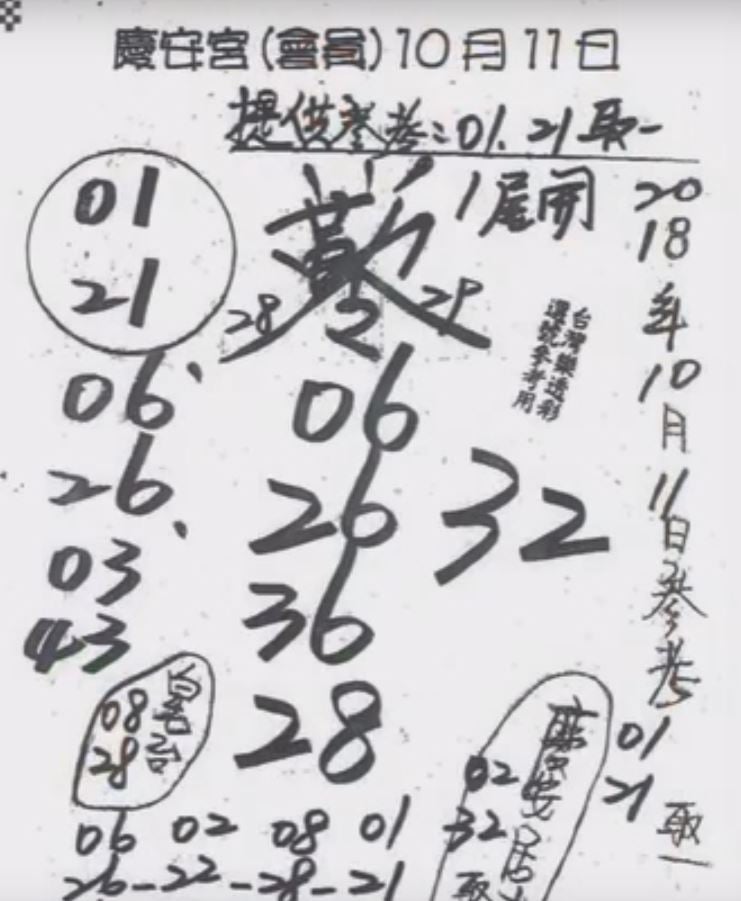 慶安宮(會員)10月11日
提供參考:01.21取一
01
21
1尾開
28
29
2018年10月11日參考
台灣樂透彩
選號參考用
06、
26、
03
43
06
26
36
28
32
08
28
06 02 08 01
26-22-28-21
慶安宮
02
32
取
01
21
取一